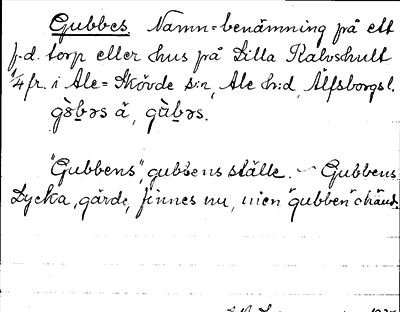 Gubbes. Namn-benämning på ett
f.d. torp eller hus på Lilla Kalvschult
1/4 fr. i Ale-Skövde s:n, Ale h:d, Älfsborgs l.
"Gubbens", gubbens ställe. – Gubbens
Lycka, gärde, finnes nu, men "gubben"